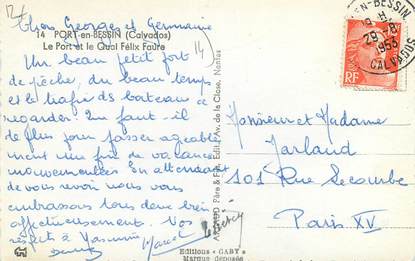 Chers Georges et Germaine
14 PORT-en-BESSIN (Calvados)
Le Port et le Quai Félix Faure
14
Un beau petit port
de pêche, du beau temps
et le trafic des bateaux à
regarder. Que faut-il
de plus pour passer agréable
ment une fin de vacances
mouvementées. En attendant
de vous revoir nous vous
embrassons tous deux bien
affectueusement. Nos
respects à
Marcel
ARTAUD Père & Fils, Edit., Av. de la Close, Nantes
Editions "GABY"
Marque déposée
EN-BESSIN
29-8
1953
CALVADOS
RF
Monsieur et Madame
Jarland
101 Rue Lecombe
Paris XV